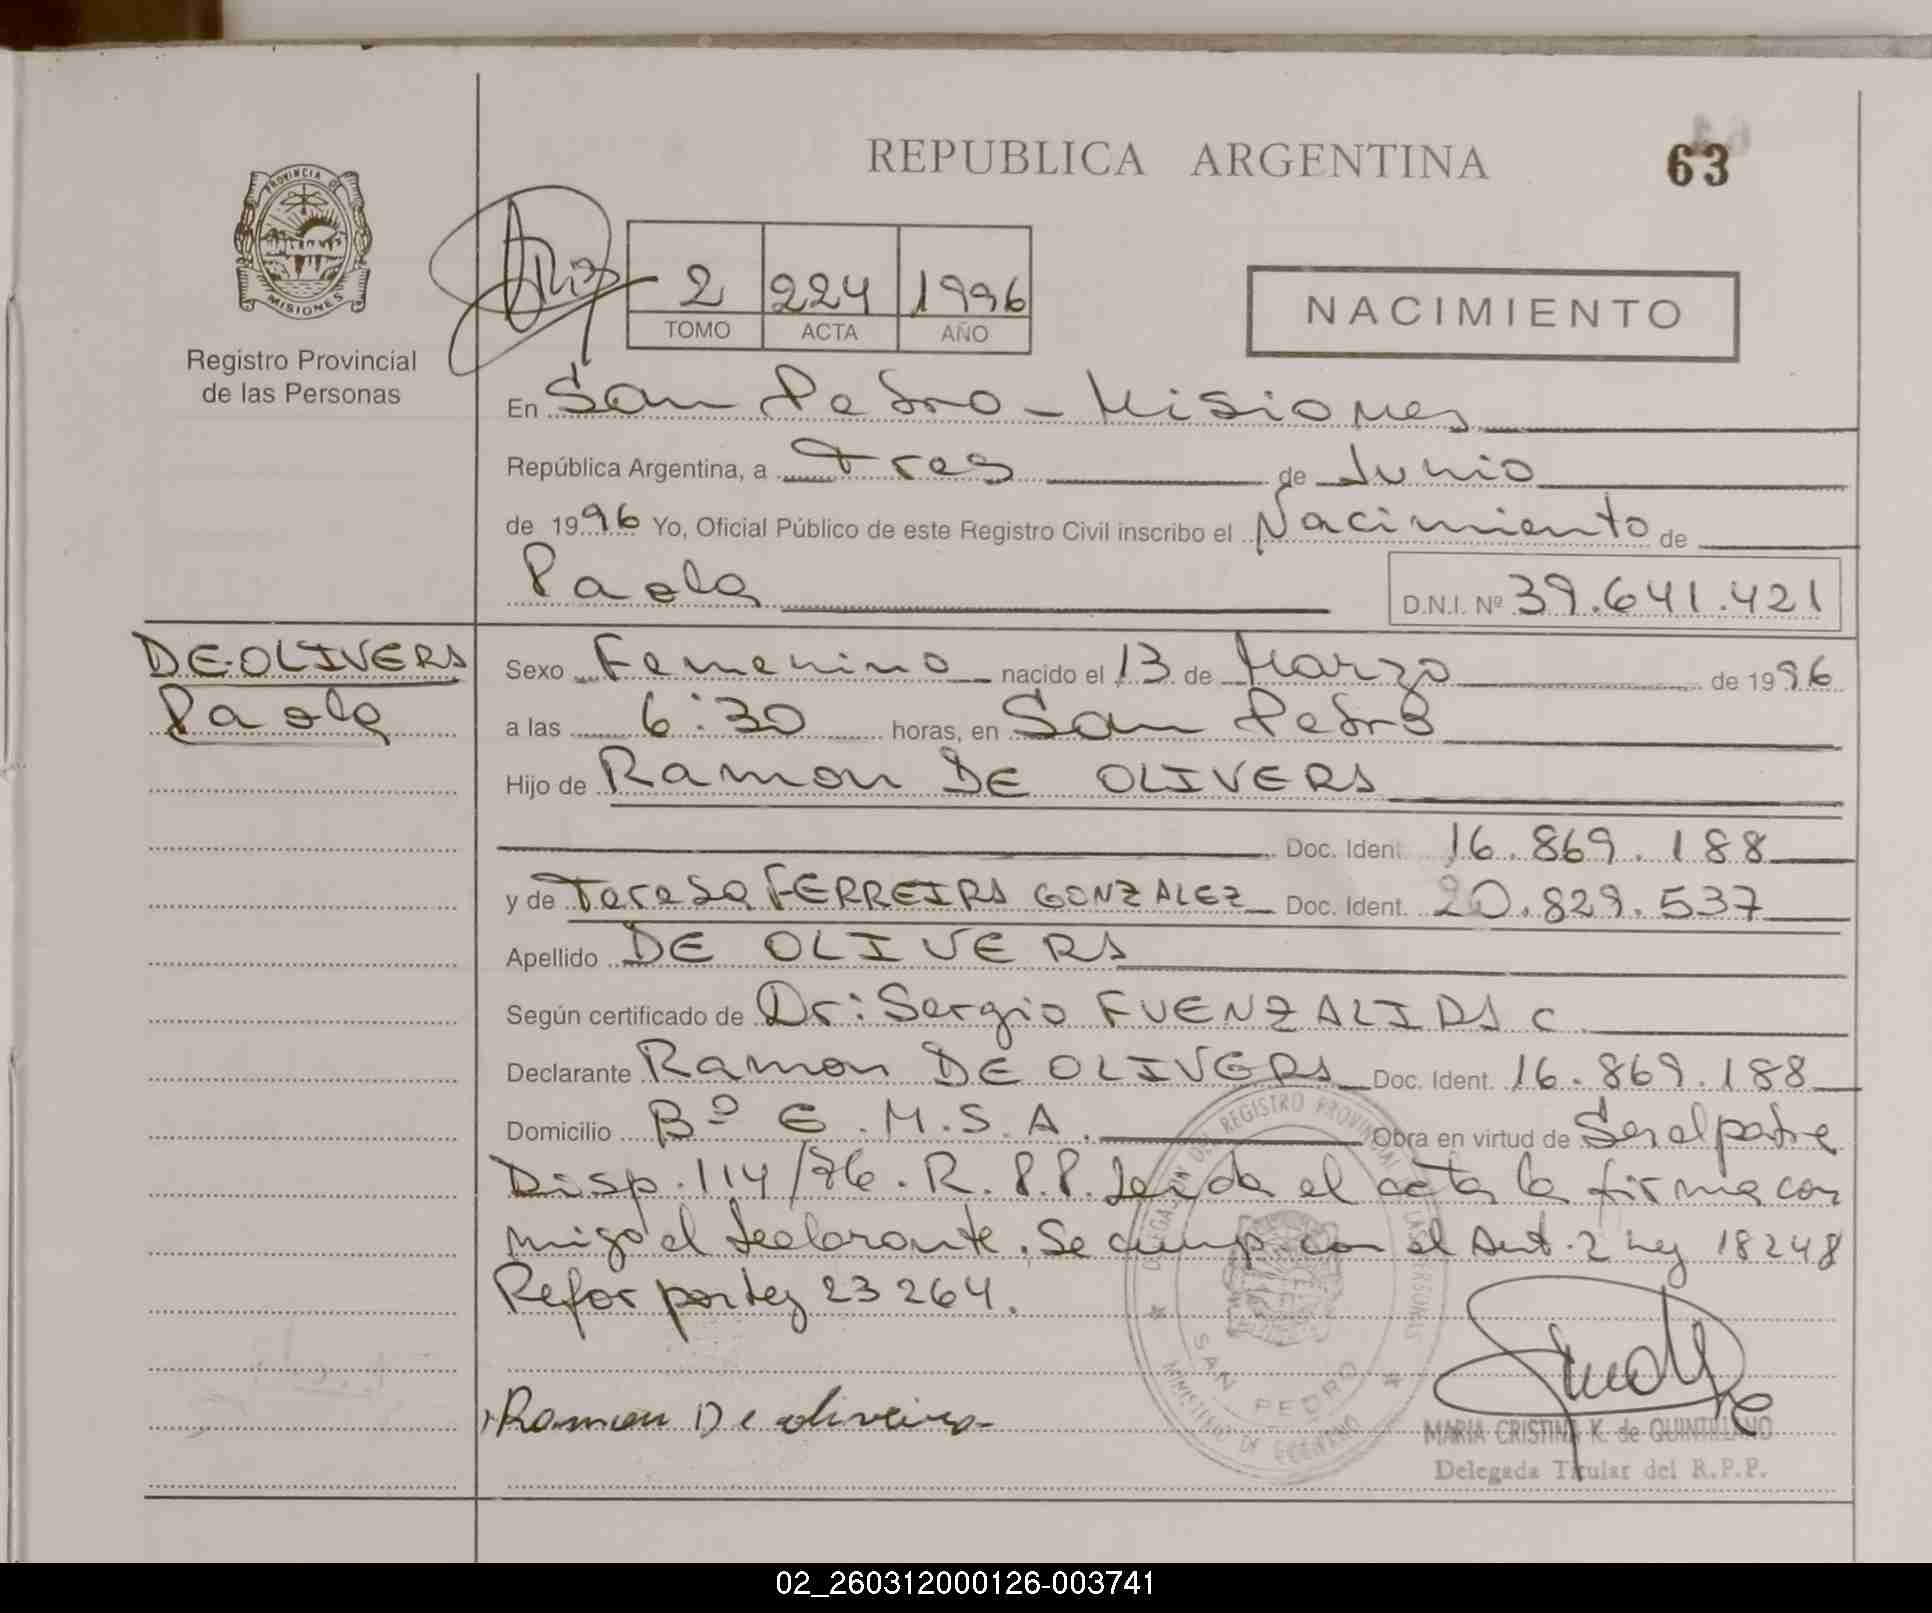 REPUBLICA ARGENTINA
63
PROVINCIA DE
MISIONES
Registro Provincial
de las Personas
2 224 1996
TOMO ACTA AÑO
NACIMIENTO
En San Pedro - Misiones
República Argentina, a Tres de Junio
de 1996 Yo, Oficial Público de este Registro Civil inscribo el Nacimiento de
Paola D.N.I. Nº 39.641.421
DE OLIVERA
Paola
Sexo Femenino nacido el 13 de Marzo de 1996
a las 6:30 horas, en San Pedro
Hijo de Ramon DE OLIVERA
Doc. Ident. 16.869.188
y de Teresa FERREIRA GONZALEZ Doc. Ident. 20.829.537
Apellido DE OLIVERA
Según certificado de Dr: Sergio FUENZALIDA C
Declarante Ramon DE OLIVERA Doc. Ident. 16.869.188
Domicilio Bº E.M.S.A. Obra en virtud de Ser el padre
Disp. 114/76. R.P.P. Leida el acta la firma con
migo el declarante. Se cump. con el Art. 2 Ley 18248
Refor por Ley 23264.
Ramon De oliveira
DELEGACION DEL REGISTRO PROVINCIAL DE LAS PERSONAS
SAN PEDRO
MINISTERIO DE GOBIERNO
MARIA CRISTINA K. de QUINTILLANO
Delegada Titular del R.P.P.
02_260312000126-003741